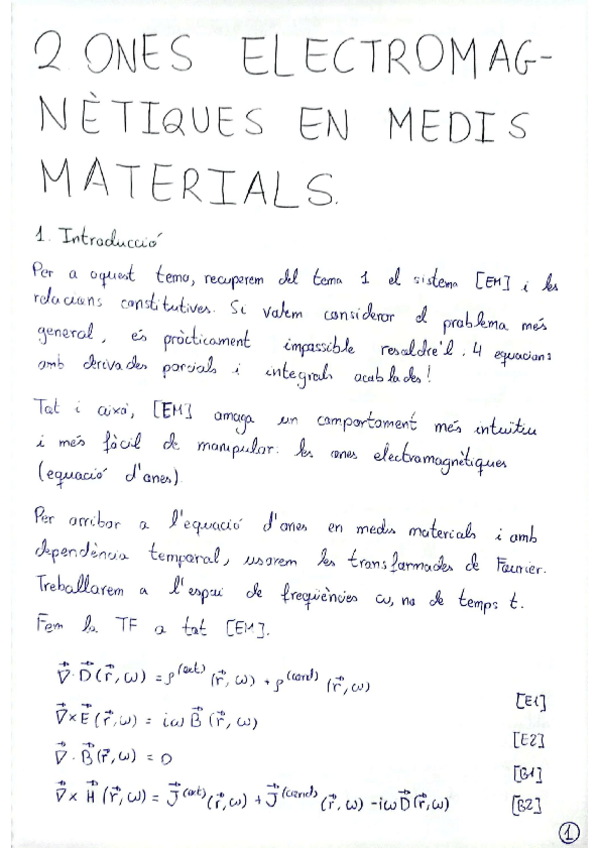 2. ONES ELECTROMAG-
NÈTIQUES EN MEDIS
MATERIALS.
1. Introducció
Per a aquest tema, recuperem del tema 1 el sistema [EM] i les
relacions constitutives. Si volem considerar el problema més
general, és pràcticament impossible resoldre'l. 4 equacions
amb derivades parcials i integrals acoblades!
Tot i això, [EM] amaga un comportament més intuïtiu
i més fàcil de manipular: les ones electromagnètiques
(equació d'ones).
Per arribar a l'equació d'ones en medis materials i amb
dependència temporal, usarem les transformades de Fourier.
Treballarem a l'espai de freqüències ω, no de temps t.
Fem la TF a tot [EM].
∇⃗·D⃗(r⃗,ω) = ρ^(ext)(r⃗,ω) + ρ^(cond)(r⃗,ω) [E1]
∇⃗×E⃗(r⃗,ω) = iωB⃗(r⃗,ω) [E2]
∇⃗·B⃗(r⃗,ω) = 0 [B1]
∇⃗×H⃗(r⃗,ω) = J⃗^(ext)(r⃗,ω) + J⃗^(cond)(r⃗,ω) - iωD⃗(r⃗,ω) [B2]
1